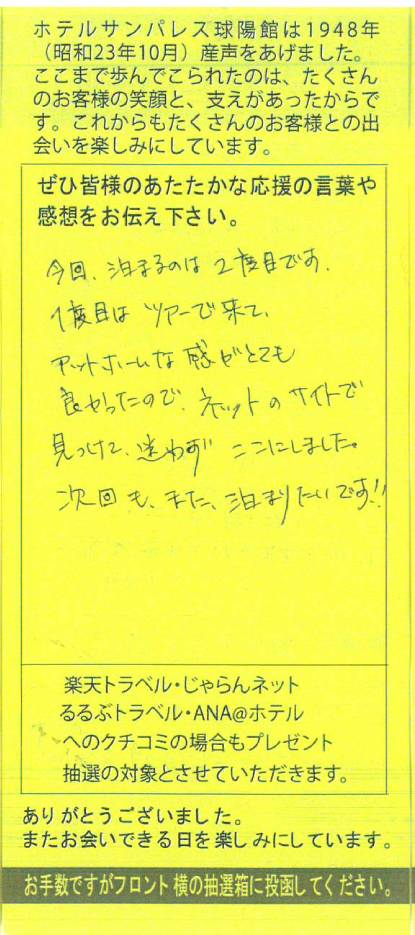 ホテルサンパレス球陽館は1948年
（昭和23年10月）産声をあげました。
ここまで歩んでこられたのは、たくさん
のお客様の笑顔と、支えがあったからで
す。これからもたくさんのお客様との出
会いを楽しみにしています。
ぜひ皆様のあたたかな応援の言葉や
感想をお伝え下さい。
今回、泊まるのは2度目です。
1度目はツアーで来て、
アットホームな感がとても
良かったので、ネットのサイトで
見つけて、迷わずここにしました。
次回も、また、泊まりたいです!!
楽天トラベル・じゃらんネット
るるぶトラベル・ANA@ホテル
へのクチコミの場合もプレゼント
抽選の対象とさせていただきます。
ありがとうございました。
またお会いできる日を楽しみにしています。
お手数ですがフロント横の抽選箱に投函してください。